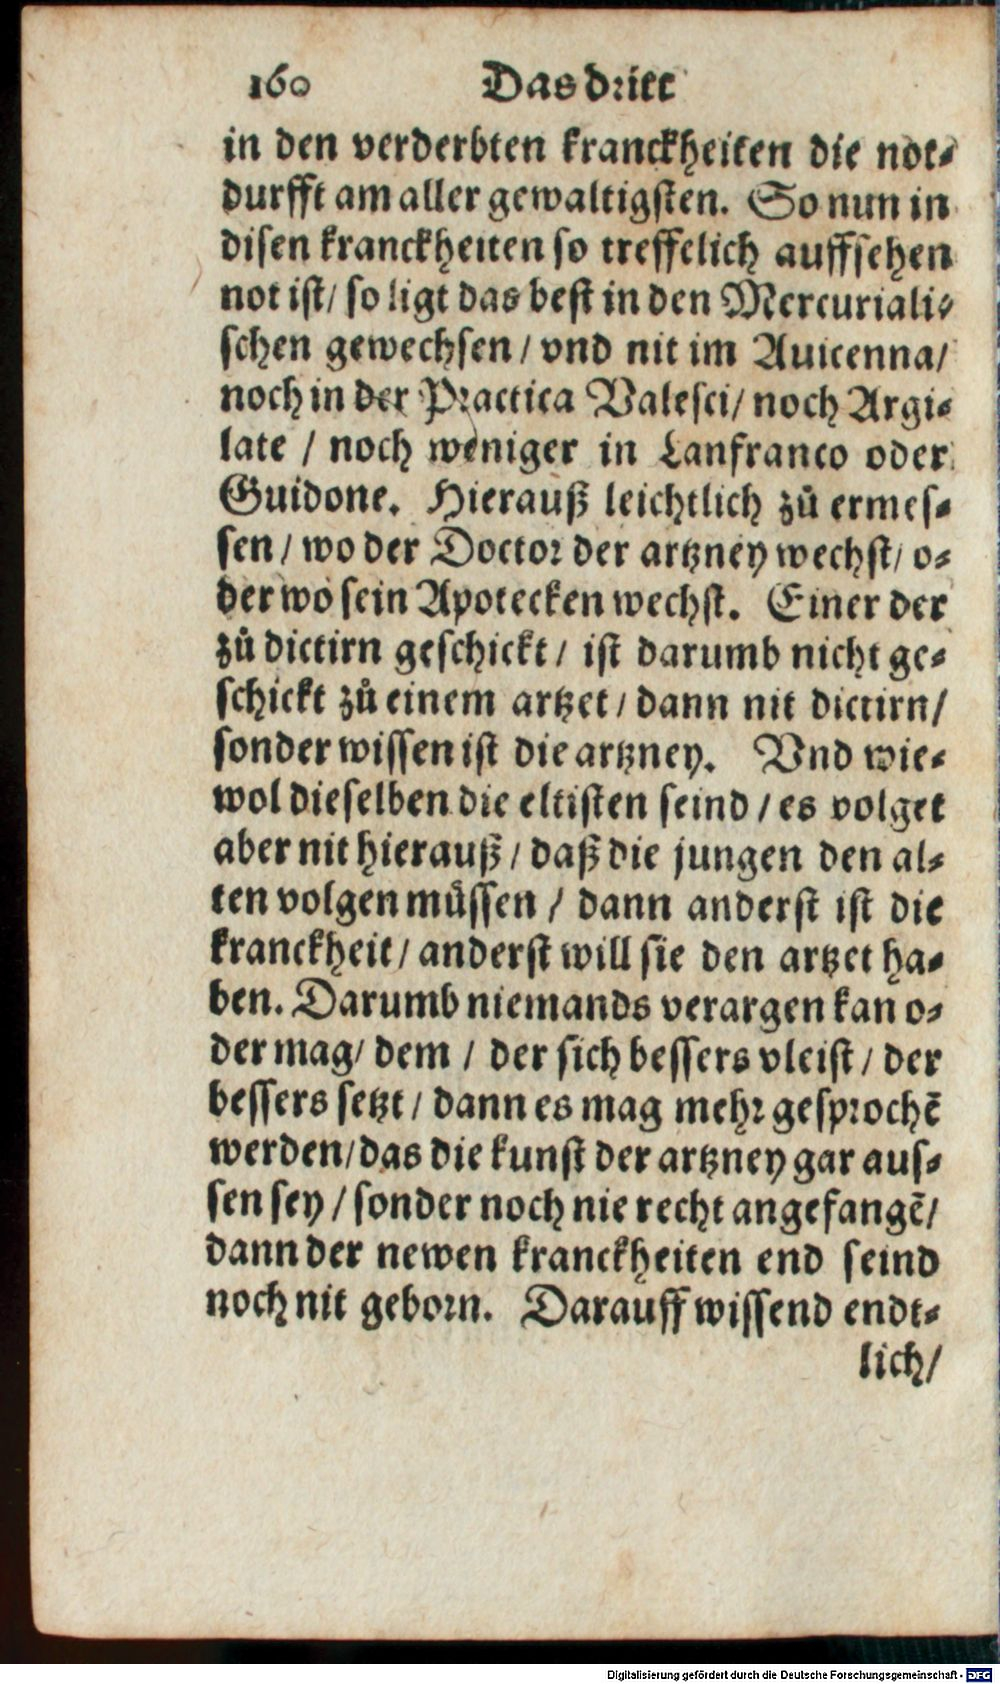 160 Das dritt
in den verderbten kranckheiten die not-
durfft am aller gewaltigsten. So nun in
disen kranckheiten so treffelich auffsehen
not ist/ so ligt das best in den Mercuriali-
schen gewechsen / vnd nit im Auicenna/
noch in der Practica Valesci/ noch Argi-
late / noch weniger in Lanfranco oder
Guidone. Hierauß leichtlich zů ermes-
sen / wo der Doctor der artzney wechst/ o-
der wo sein Apotecken wechst. Einer der
zů dictirn geschickt / ist darumb nicht ge-
schickt zů einem artzet / dann nit dictirn/
sonder wissen ist die artzney. Vnd wie-
wol dieselben die eltisten seind / es volget
aber nit hierauß / daß die jungen den al-
ten volgen müssen / dann anderst ist die
kranckheit / anderst will sie den artzet ha-
ben. Darumb niemands verargen kan o-
der mag/ dem / der sich bessers vleist / der
bessers setzt / dann es mag mehr gesprochẽ
werden/ das die kunst der artzney gar aus-
sen sey / sonder noch nie recht angefangẽ/
dann der newen kranckheiten end seind
noch nit geborn. Darauff wissend endt-
lich/
Digitalisierung gefördert durch die Deutsche Forschungsgemeinschaft - DFG